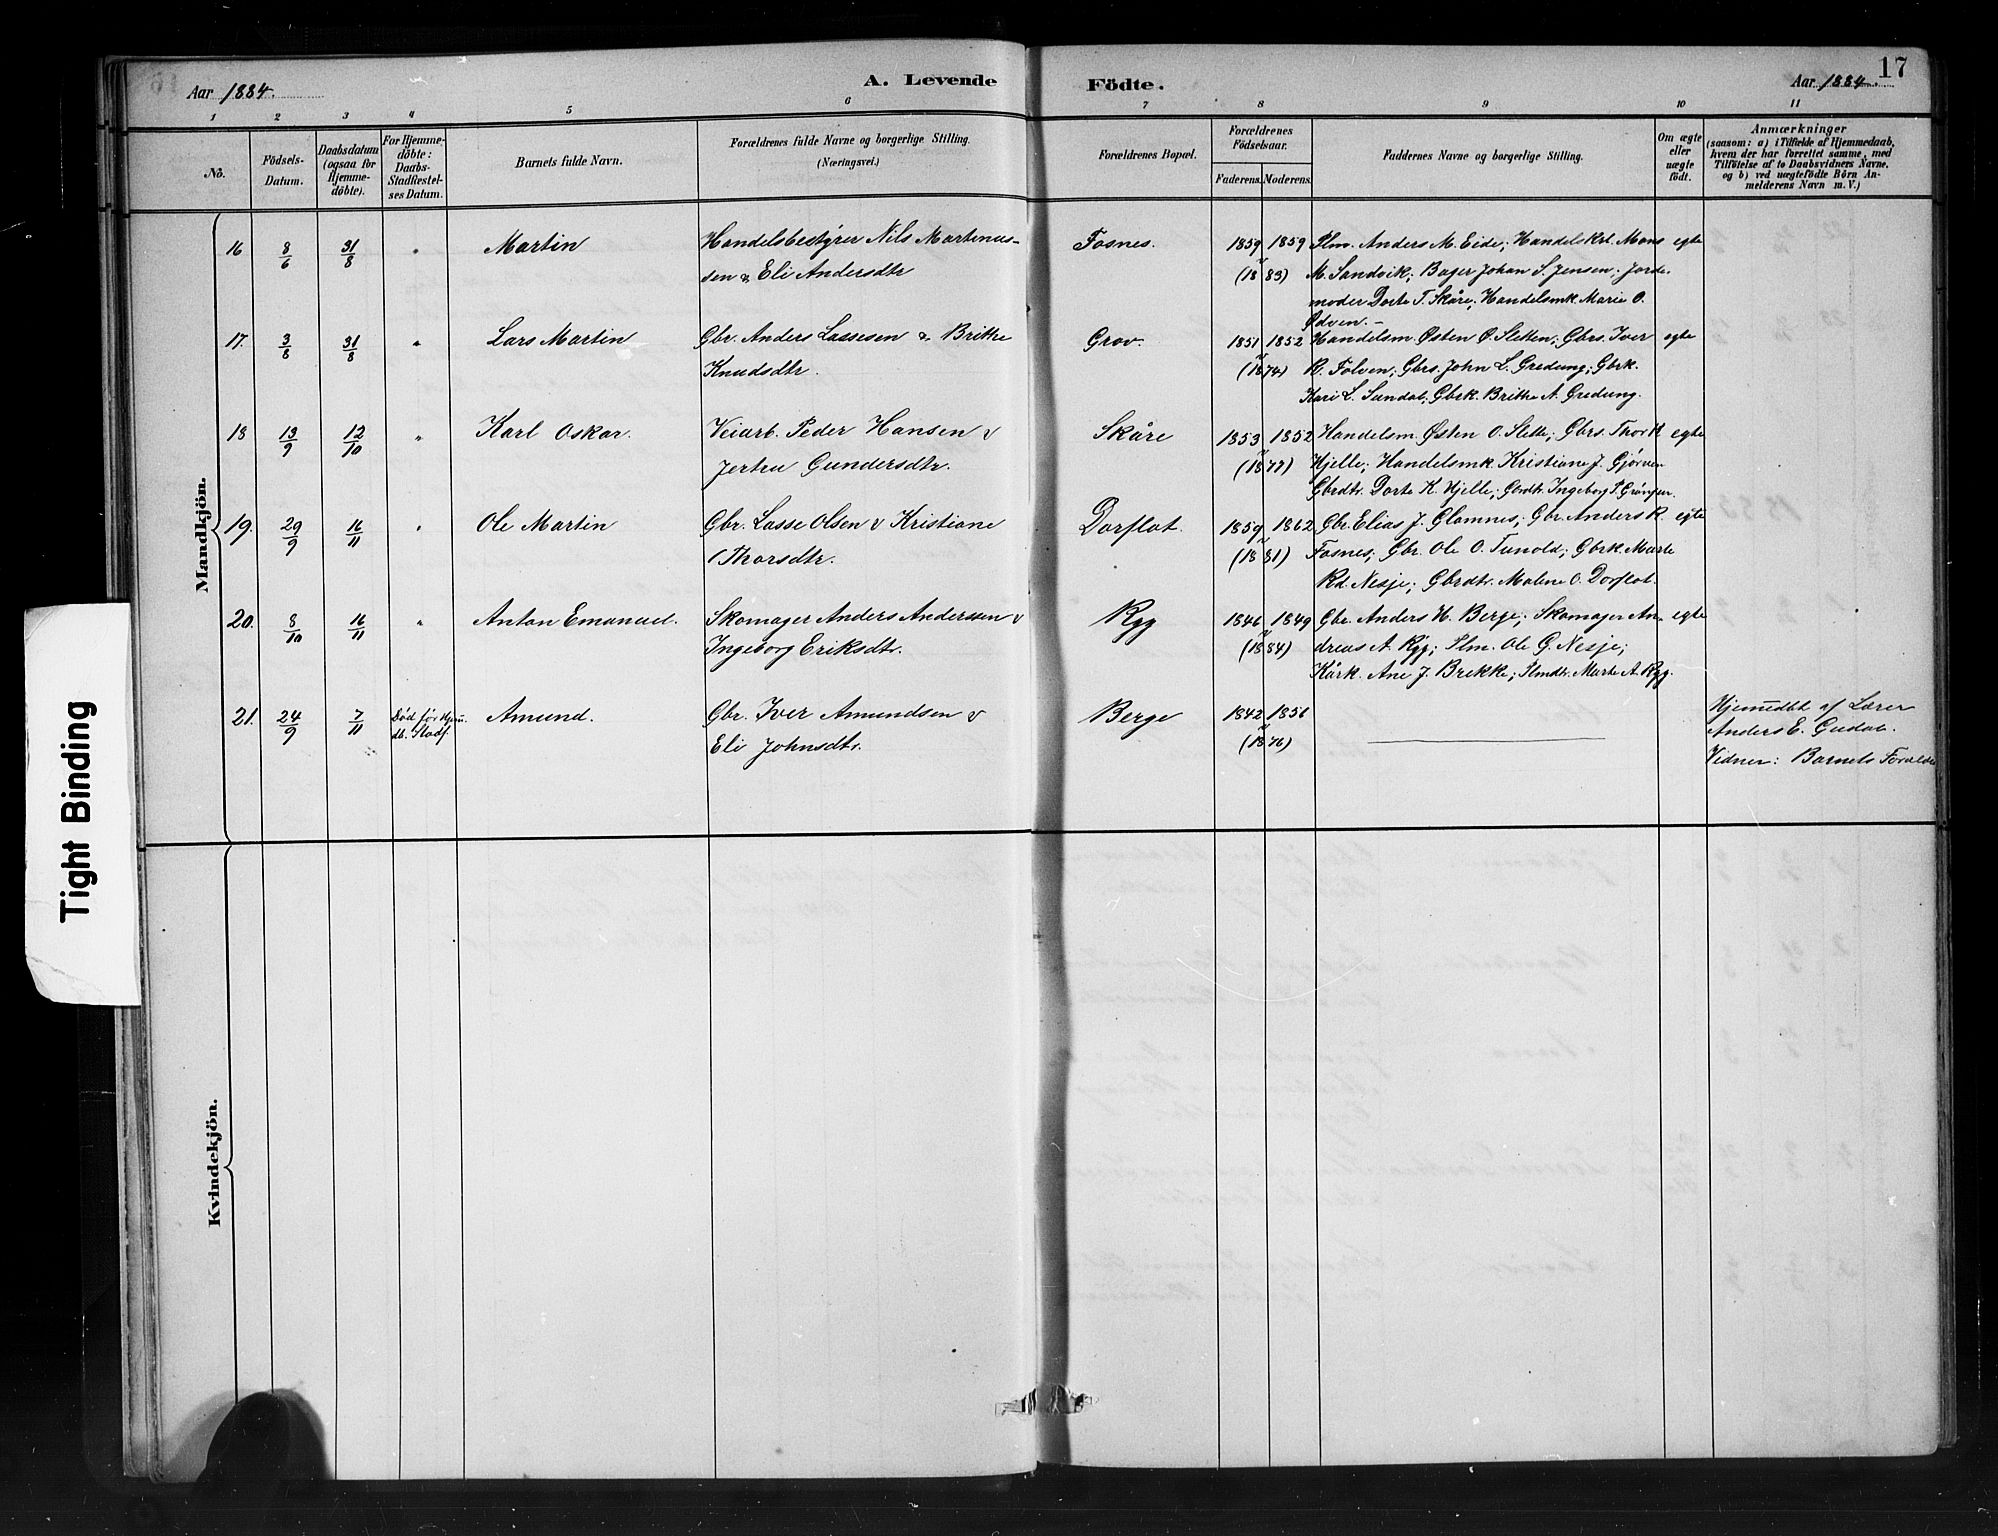 Aar 1884.
A. Levende
Födte.
Aar 1884.
17
1 2 3 4 5 6 7 8 9 10 11
No.
Födsels-
Datum.
Daabsdatum
(ogsaa för
Hjemme-
döbte).
For Hjemme-
döbte:
Daabs-
Stadfæstel-
ses Datum.
Barnets fulde Navn.
Forældrenes fulde Navne og borgerlige Stilling.
(Næringsvei.)
Forældrenes Bopæl.
Forældrenes
Födselsaar.
Faderens. Moderens.
Faddernes Navne og borgerlige Stilling.
Om ægte
eller
uægte
födt.
Anmærkninger
(saasom: a) i Tilfælde af Hjemmedaab,
hvem der har forrettet samme, med
Tilföielse af to Daabsvidners Navne,
og b) ved uægtefödte Börn An-
melderens Navn m. V.)
Mandkjön.
16 8/6 31/8 " Martin
Handelsbestyrer Nils Martinus-
sen & Eli Andersdtr
Fosnes.
1859 1859
(1883)
Slm. Anders M. Eide; Handelskrl. Mons
M. Sandvik; Bager Johan S. Jensen; Jorde-
moder Dorte T. Skåre; Handelsmk Marie O.
Ødven.-
egte
17. 3/8 31/8 " Lars Martin
Gbr. Anders Lassesen & Brithe
Knudsdtr.
Grov.
1851 1852
(1874)
Handelsm. Østen O. Sletten; Gbrs. Iver
R. Folven; Gbrs. John L. Gredung; Gbrk.
Kari L. Sundal; Gbrk. Brithe A. Gredung.
egte
18 13/9 12/10 " Karl Oskar.
Veiarb. Peder Hansen &
Jertru Gundersdtr.
Skåre
1853 1852
(1877)
Handelsm. Østen O. Slette; Gbrs. Thor K
Hjelle; Handelsmk. Kristiane J. Gjørven
Gbrdtr. Dorte K. Hjelle; Gbrdtr. Ingeborg
egte
19. 29/9 16/11 " Ole Martin
Gbr. Lasse Olsen & Kristiane
Thorsdtr.
Dorflot.
1859 1862
(1881)
Gbr. Elias J. Glomnes; Gbr. Anders R.
Fosnes; Gbr. Ole O. Tunold; Gbrk. Marte
Rd. Nesje; Gbrdtr. Malene O. Dorflot.
egte
20. 8/10 16/11 " Anton Emanuel.
Skomager Anders Anderssen &
Ingeborg Eriksdtr.
Ryg
1846 1849
(1884)
Gbr. Anders H. Berge; Skomager An-
dreas A. Ryg; Slm. Ole G. Nesje;
Kårk. Ane J. Brekke; Slmdtr. Marte A. Ryg.
egte
21. 24/9 7/11
Død før Hjem.
db. Stadf.
Amund.
Gbr. Iver Amundsen &
Eli Johnsdtr.
Berge
1842 1856
(1876)
Hjemedbt af Lærer
Anders E. Gudal.
Vidner: Barnets Forælde
Kvindekjön.
Tight Binding